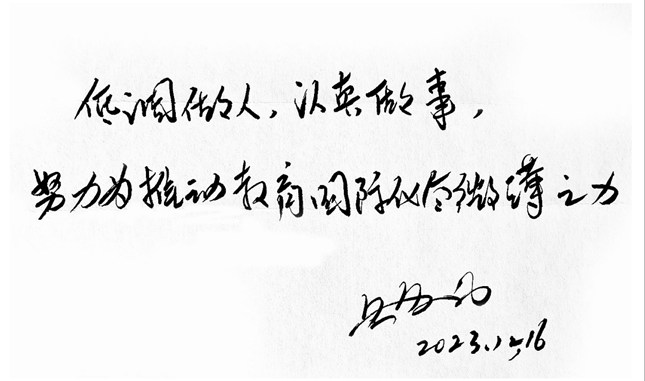 低调做人，认真做事，
努力为推动教育国际化尽微薄之力
2023.12.16